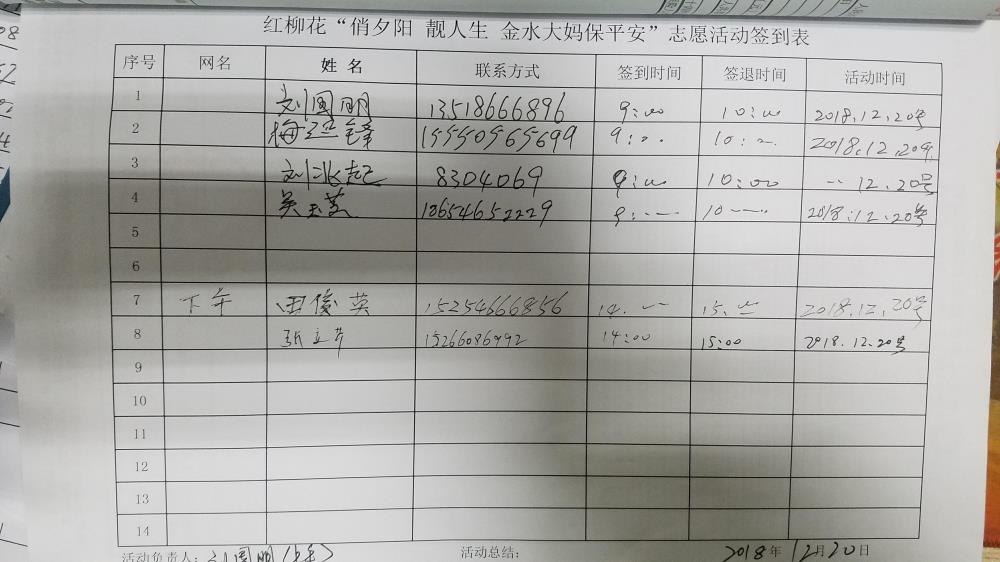 红柳花“俏夕阳 靓人生 金水大妈保平安”志愿活动签到表
序号 网名 姓名 联系方式 签到时间 签退时间 活动时间
1 刘国明 13518666896 9:00 10:00 2018.12.20号
2 15550965699 9:00 10:00 2018.12.20号
3 8304069 9:00 10:00 12.20号
4 吴玉芝 18654652229 9: 10 2018.12.20号
5
6
7 下午 田俊英 15254666856 14: 15: 2018.12.20号
8 张立芹 15266086992 14:00 15:00 2018.12.20号
9
10
11
12
13
14
活动负责人:刘国明 活动总结: 2018年12月20日